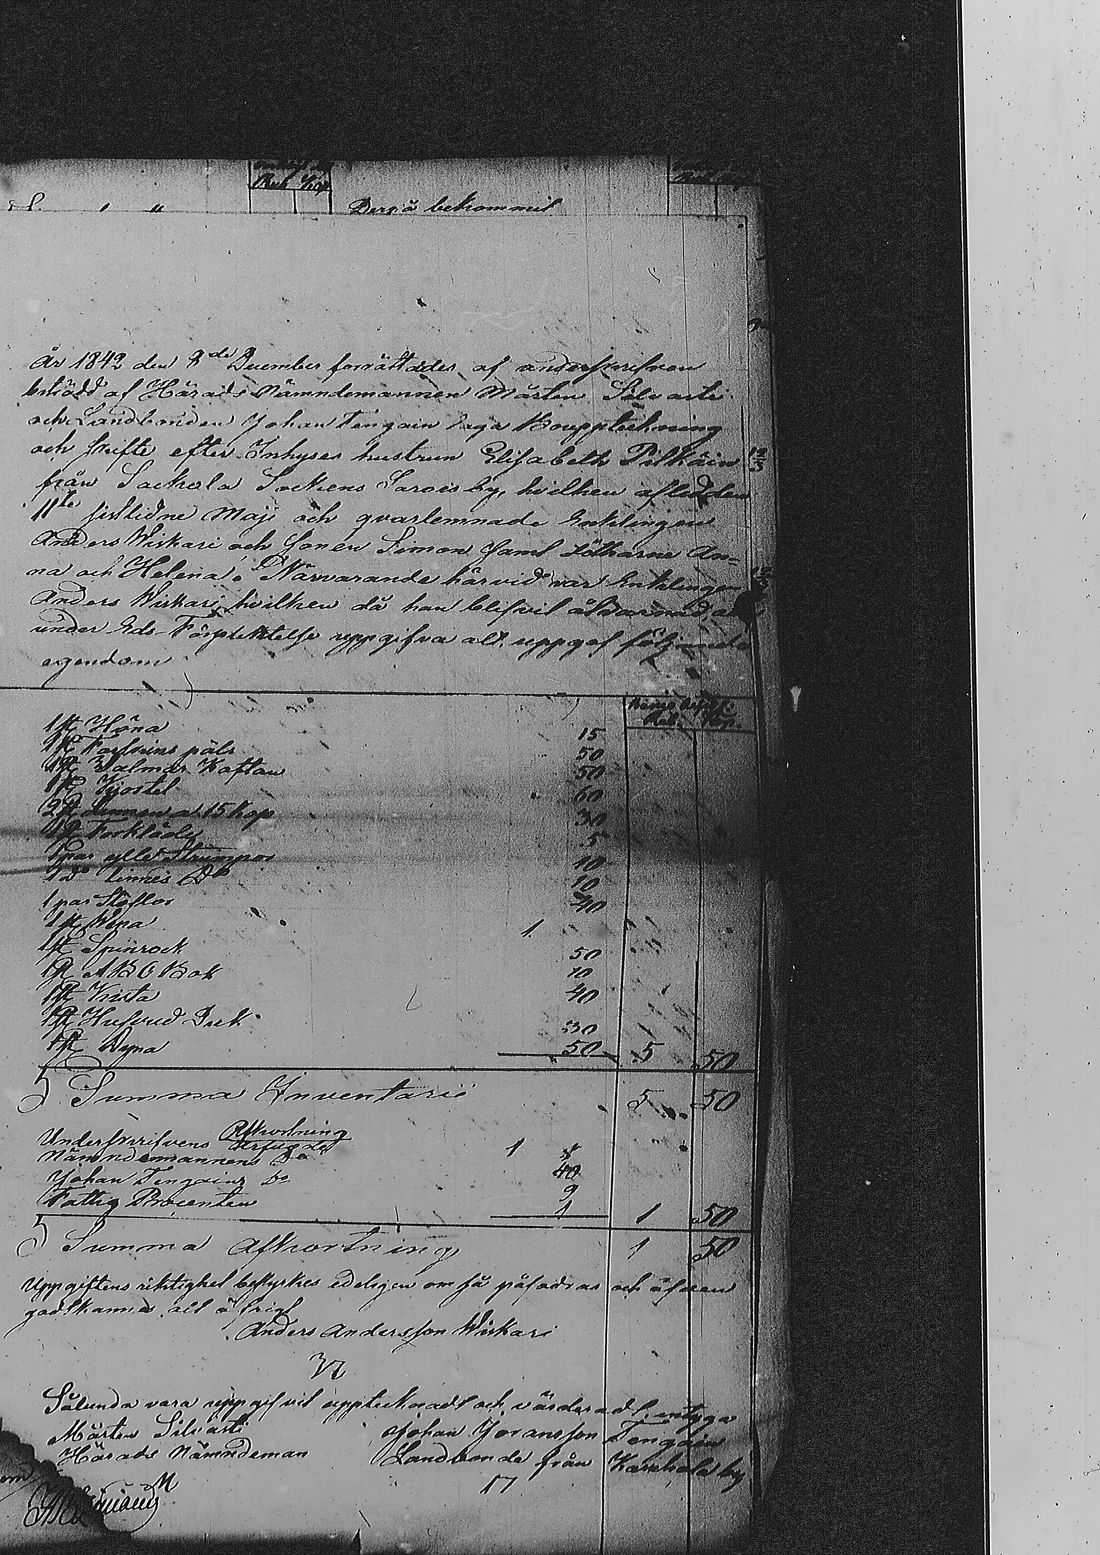 Rub Kop
Derså bekommit
År 1842 den 8de December förrättades af underskrifven
biträdd af Härads Nämndemannen Mårten Silvasti
och Landbonden Johan Tengain laga Bouppteckning
och skifte efter Inhyses hustrun Elisabeth Pilkäin
från Sackola Sockens Sarois by, hvilken afled den
11te sistlidne Maji och qvarlemnade Enklingen
Anders Wiskari och Sonen Simon samt dötharne An-
na och Helena; Närvarande härvid var Enklingen
Anders Wiskari, hvilken då han blifvit åtvarnad at
under Eds Förpliktelse uppgifva alt, uppgaf följande
egendom
Rub. Kop.
1 st Höna 15
1 st Fårskins päls 50
1 st Valmar Kaftan 50
1 st Kjortel 60
2 st Linnen a 15 kop 30
1 st Förkläde 5
1 par ylle Strumpor 10
1 do linnes Do 10
1 par Stöflor 40
1 st 1
1 st Spinrock 50
1 st ABC Bok 10
1 st Kista 40
1 st Hufvud Duk 30
1 st Dyna 50 5 50
Summa Inventarii 5 50
Afkortning
Underskrifvens Arfvode 1
Nämndemannens Do 40
Johan Tengains Do 9
Fattig Procenten 1 1 50
Summa Afkortning 1 50
Uppgiftens riktighet bestyrkes edeligen om så påfodras och äfven
godkännes alt öfrigt
Anders Andersson Wiskari
Sålunda vara uppgifvit upptecknadt och värderadt intyga
Mårten Silvasti Johan Jöransson Tengain
Härads Nämndeman Landbonde från Karhola by